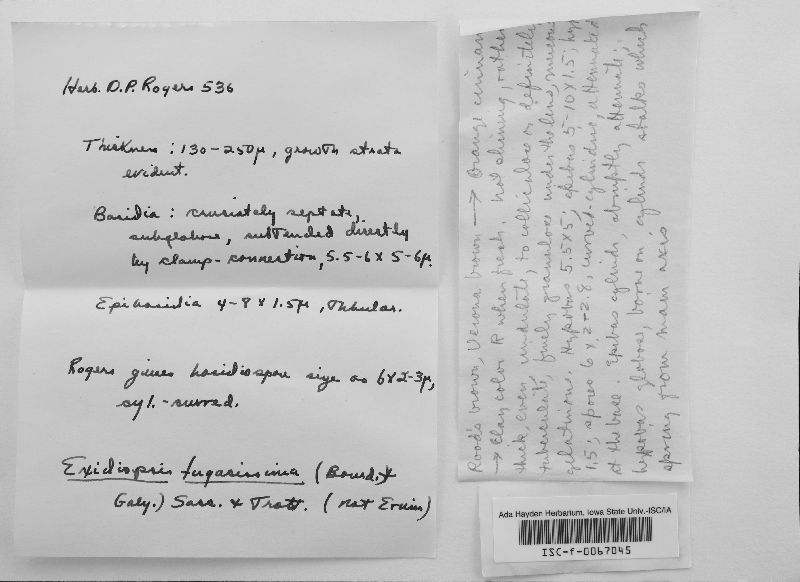 Herb. D.P. Rogers 536
Thickness : 130-250μ, growth strata
evident.
Basidia : cruciately septate,
subglobose, subtended directly
by clamp-connection, 5.5-6 x 5-6μ.
Epibasidia 4-8 x 1.5μ, tubular.
Rogers gives basidiospore size as 6x2-3μ,
cyl.-curved.
Exidiopsis fugacissima (Bourd. &
Galz.) Sacc. & Trott. (not Ervin)
Rood's brown, Verona brown → Orange cinnam
→ Clay color R when fresh. Not shining, rather
thick, even, undulate, to colliculose or definitely
tuberculate, finely granulose under the lens, mucous
gelatinous. Hypobas 5.5x5; epibas 5-10x1.5; hyp
1.5; spores 6 x 2-2.8, curved-cylindric, attenuated
at the base. Epibas cylindr, abruptly attenuate;
hypobas globose, borne on cylindr stalks which
spring from main axis
Ada Hayden Herbarium, Iowa State Univ.-ISC/IA
ISC-f-0067045